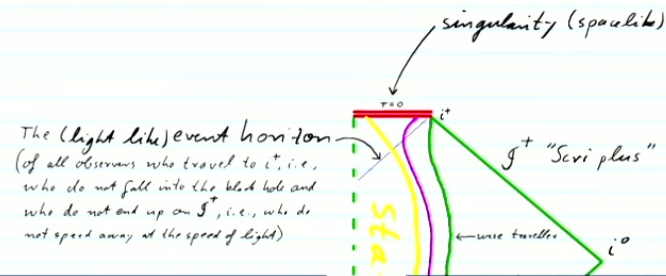 singularity (spacelike)
r=0
i⁺
The (light like) event horizon
(of all observers who travel to i⁺, i.e.,
who do not fall into the black hole and
who do not end up on 𝓘⁺, i.e., who do
not speed away at the speed of light)
𝓘⁺ "Scri plus"
Sta
wise traveller
i⁰